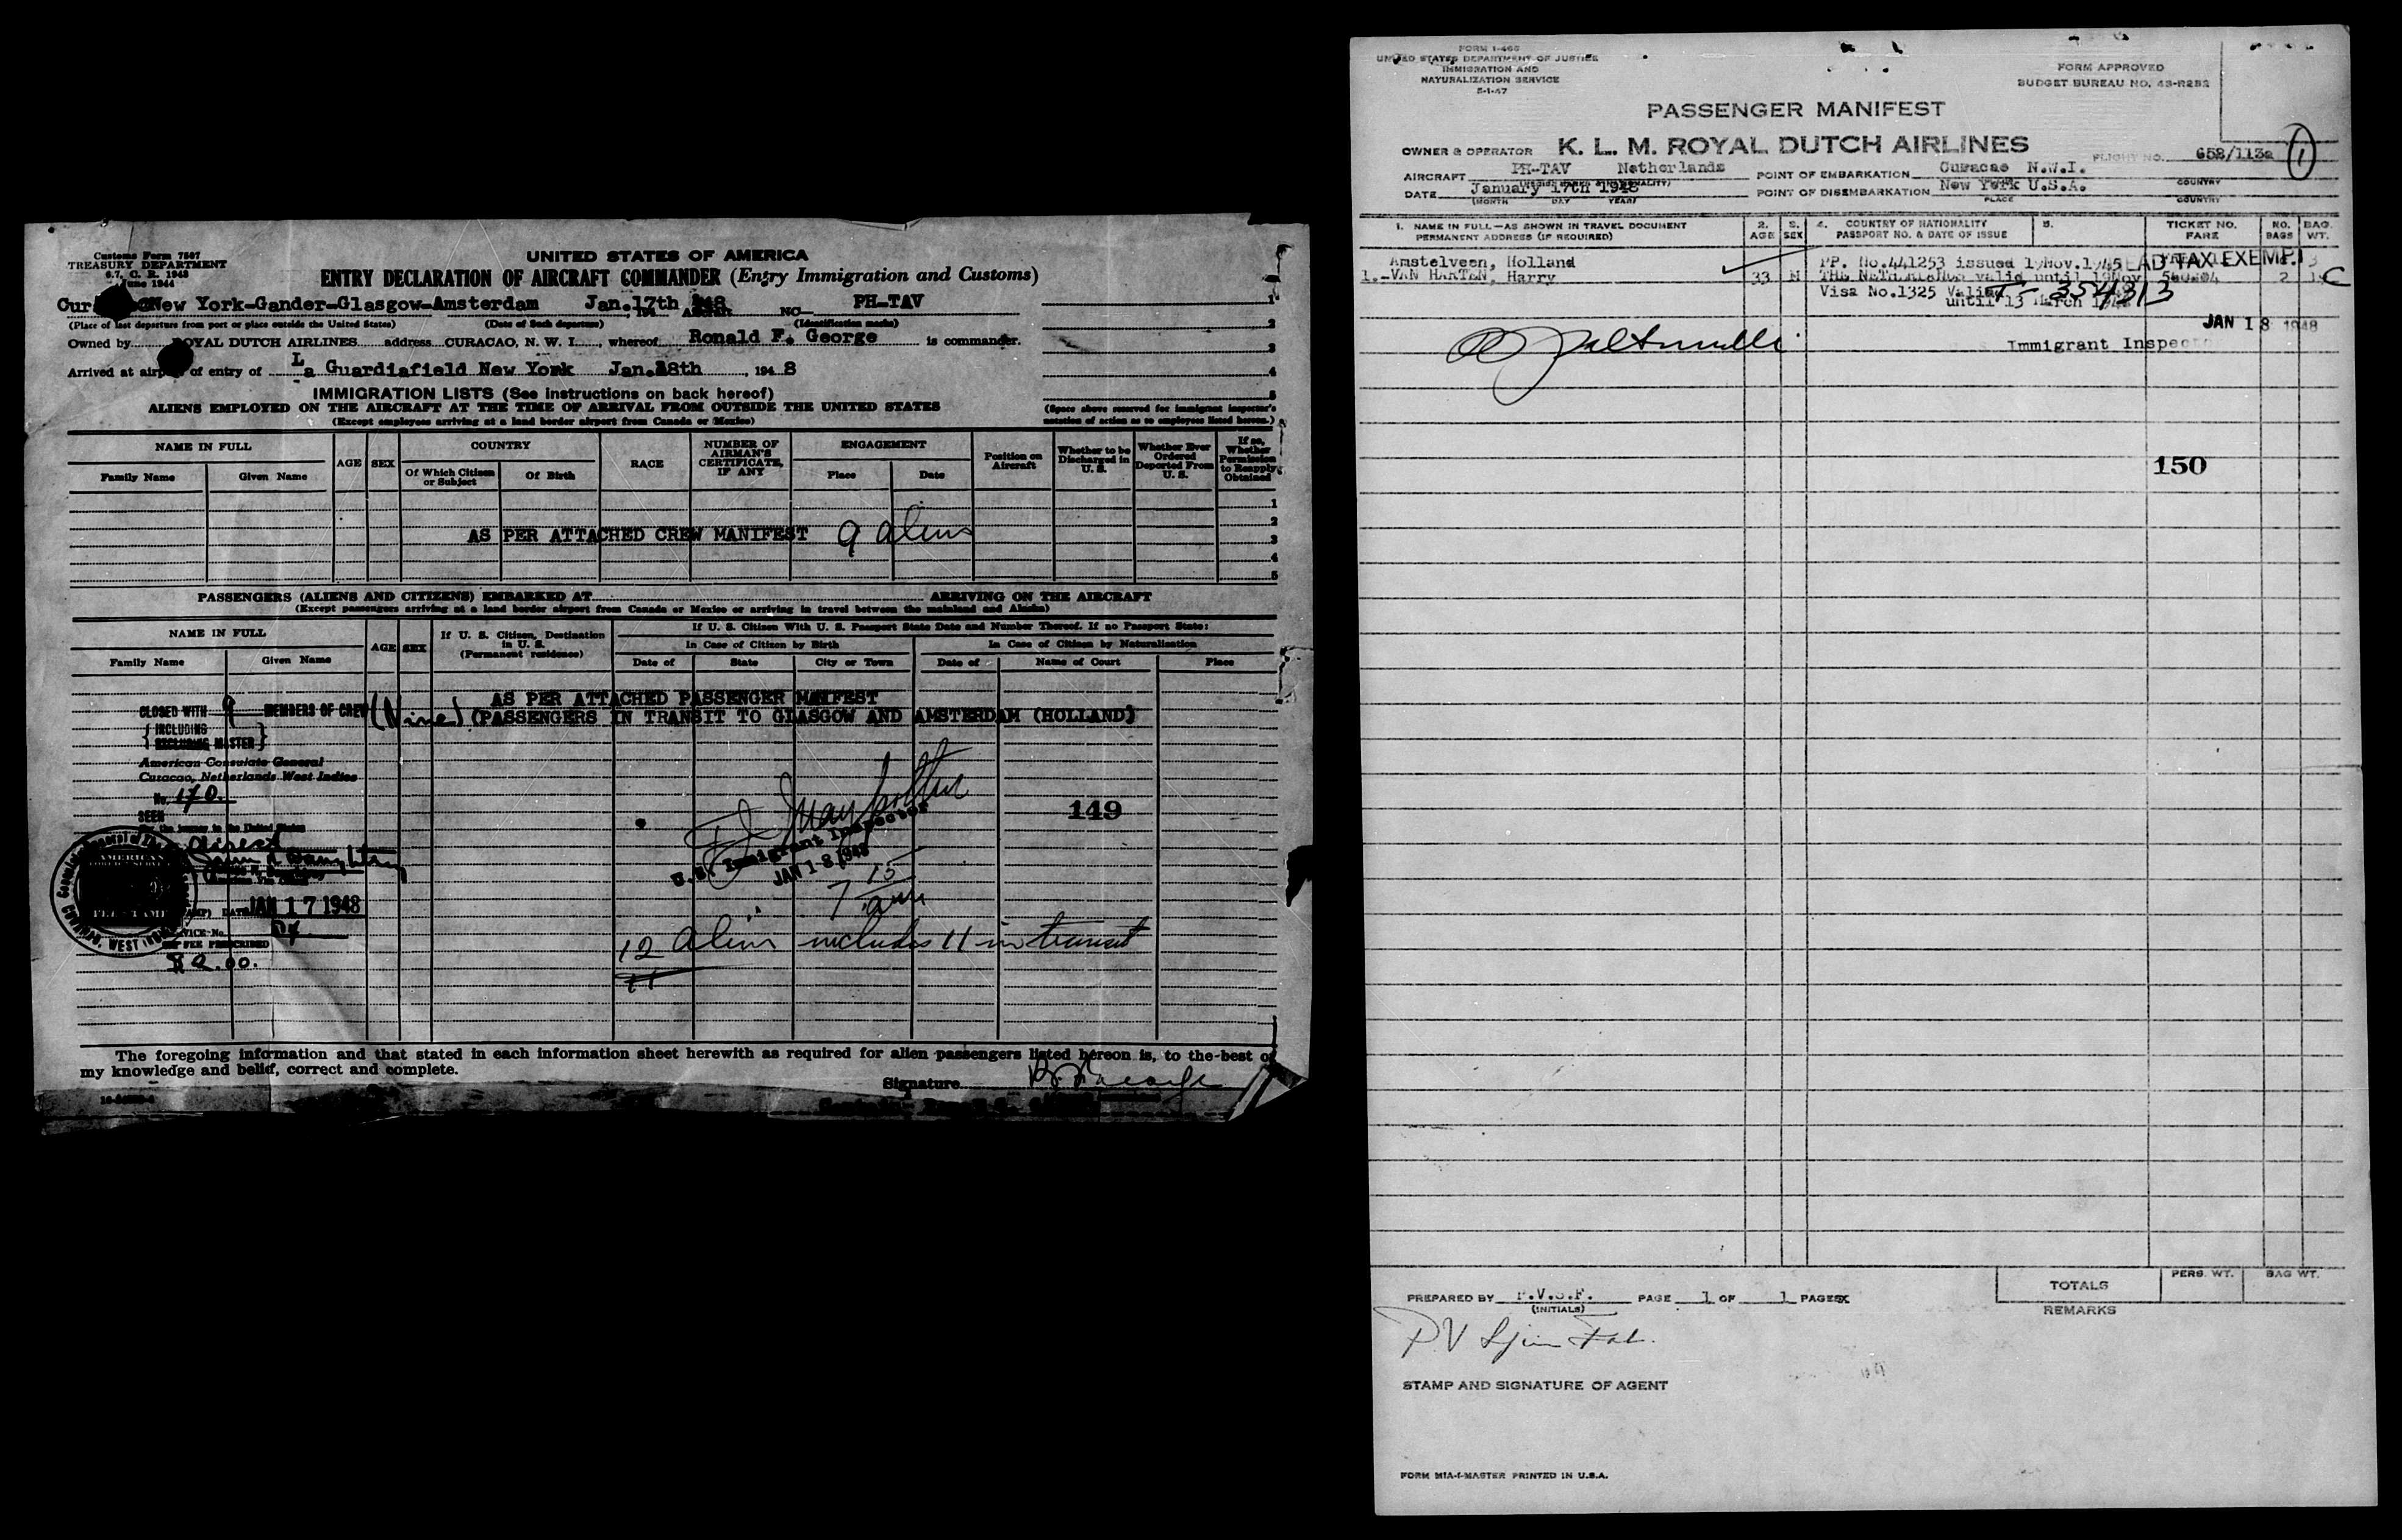 Customs Form 7507
TREASURY DEPARTMENT
6.7, C. R. 1943
June 1944
UNITED STATES OF AMERICA
ENTRY DECLARATION OF AIRCRAFT COMMANDER (Entry Immigration and Customs)
Cur New York-Gander-Glasgow-Amsterdam Jan.17th 948 NC PH-TAV
(Place of last departure from port or place outside the United States) (Date of Such departure) (Identification marks)
Owned by OYAL DUTCH AIRLINES address CURACAO, N. W. I. , whereof Ronald F. George is commander.
Arrived at airp of entry of La Guardiafield New York Jan.18th , 194 8
1
2
3
4
5
IMMIGRATION LISTS (See instructions on back hereof)
ALIENS EMPLOYED ON THE AIRCRAFT AT THE TIME OF ARRIVAL FROM OUTSIDE THE UNITED STATES
(Except employees arriving at a land border airport from Canada or Mexico)
(Space above reserved for immigrant inspector's notation of action as to employees listed hereon.)
NAME IN FULL AGE SEX COUNTRY RACE NUMBER OF AIRMAN'S CERTIFICATE, IF ANY ENGAGEMENT Position on Aircraft Whether to be Discharged in U. S. Whether Ever Ordered Deported From U. S. If so, Whether Permission to Reapply Obtained
Family Name Given Name Of Which Citizen or Subject Of Birth Place Date
1
2
AS PER ATTACHED CREW MANIFEST 9 aliens
3
4
5
PASSENGERS (ALIENS AND CITIZENS) EMBARKED AT ARRIVING ON THE AIRCRAFT
(Except passengers arriving at a land border airport from Canada or Mexico or arriving in travel between the mainland and Alaska)
NAME IN FULL AGE SEX If U. S. Citizen, Destination in U. S. (Permanent residence) If U. S. Citizen With U. S. Passport State Date and Number Thereof. If no Passport State:
In Case of Citizen by Birth In Case of Citizen by Naturalization
Family Name Given Name Date of State City or Town Date of Name of Court Place
AS PER ATTACHED PASSENGER MANIFEST
CLOSED WITH 9 MEMBERS OF CREW (Nine) (PASSENGERS IN TRANSIT TO GLASGOW AND AMSTERDAM (HOLLAND)
INCLUDING
EXCLUDING MASTER
American Consulate General
Curacao, Netherlands West Indies
No. 170.
149
SEEN
For the journey to the United States
direct
U.S. Immigrant Inspector
JAN 18 1948
7 15 am
AMERICAN
DATE JAN 17 1948
WEST
SERVICE No. 54
FEE PRESCRIBED
$2.00.
12 aliens includes 11 in transit
11
The foregoing information and that stated in each information sheet herewith as required for alien passengers listed hereon is, to the best of
my knowledge and belief, correct and complete.
Signature R F George
FORM I-466
UNITED STATES DEPARTMENT OF JUSTICE
IMMIGRATION AND
NATURALIZATION SERVICE
5-1-47
FORM APPROVED
BUDGET BUREAU NO. 43-R282
PASSENGER MANIFEST
OWNER & OPERATOR K. L. M. ROYAL DUTCH AIRLINES FLIGHT NO. 658/113a 1
AIRCRAFT PH-TAV Netherlands POINT OF EMBARKATION Curacao N.W.I.
DATE January 17th 1948 POINT OF DISEMBARKATION New York U.S.A.
(MONTH DAY YEAR) PLACE COUNTRY
1. NAME IN FULL—AS SHOWN IN TRAVEL DOCUMENT PERMANENT ADDRESS (IF REQUIRED) 2. AGE 3. SEX 4. COUNTRY OF NATIONALITY PASSPORT NO. & DATE OF ISSUE 5. TICKET NO. FARE NO. BAGS BAG. WT.
Amstelveen, Holland PP. No.441253 issued 19Nov.1945 HEAD TAX EXEMPT
1.-VAN HARTEN, Harry 33 M THE NETHERLANDS valid until 19Nov 2 C
Visa No.1325 Valid
until 13 March
T- 354313
JAN 18 1948
Immigrant Inspector
150
TOTALS PERS. WT. BAG WT.
PREPARED BY P.V.S.F. PAGE 1 OF 1 PAGES
(INITIALS)
REMARKS
STAMP AND SIGNATURE OF AGENT
FORM MIA-I-MASTER PRINTED IN U.S.A.